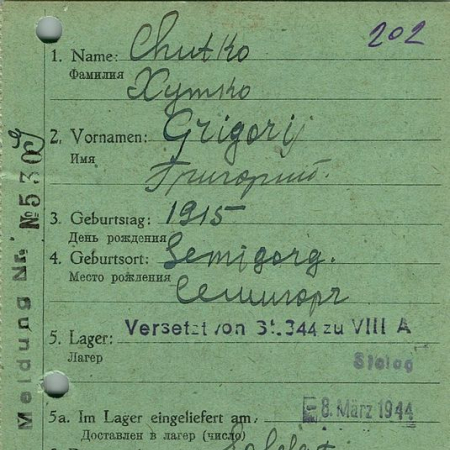 202
1. Name: Chutko
Фамилия Хутко
2. Vornamen: Grigorij
Имя
Григорий.
3. Geburtstag: 1915
День рождения
4. Geburtsort: Semigorg.
Место рождения
Семигорг
5. Lager: Versetzt von St. 344 zu VIII A
Лагерь Stalag
5a. Im Lager eingeliefert am -8. März 1944
Доставлен в лагерь (число)
Meldung Nr. № 530